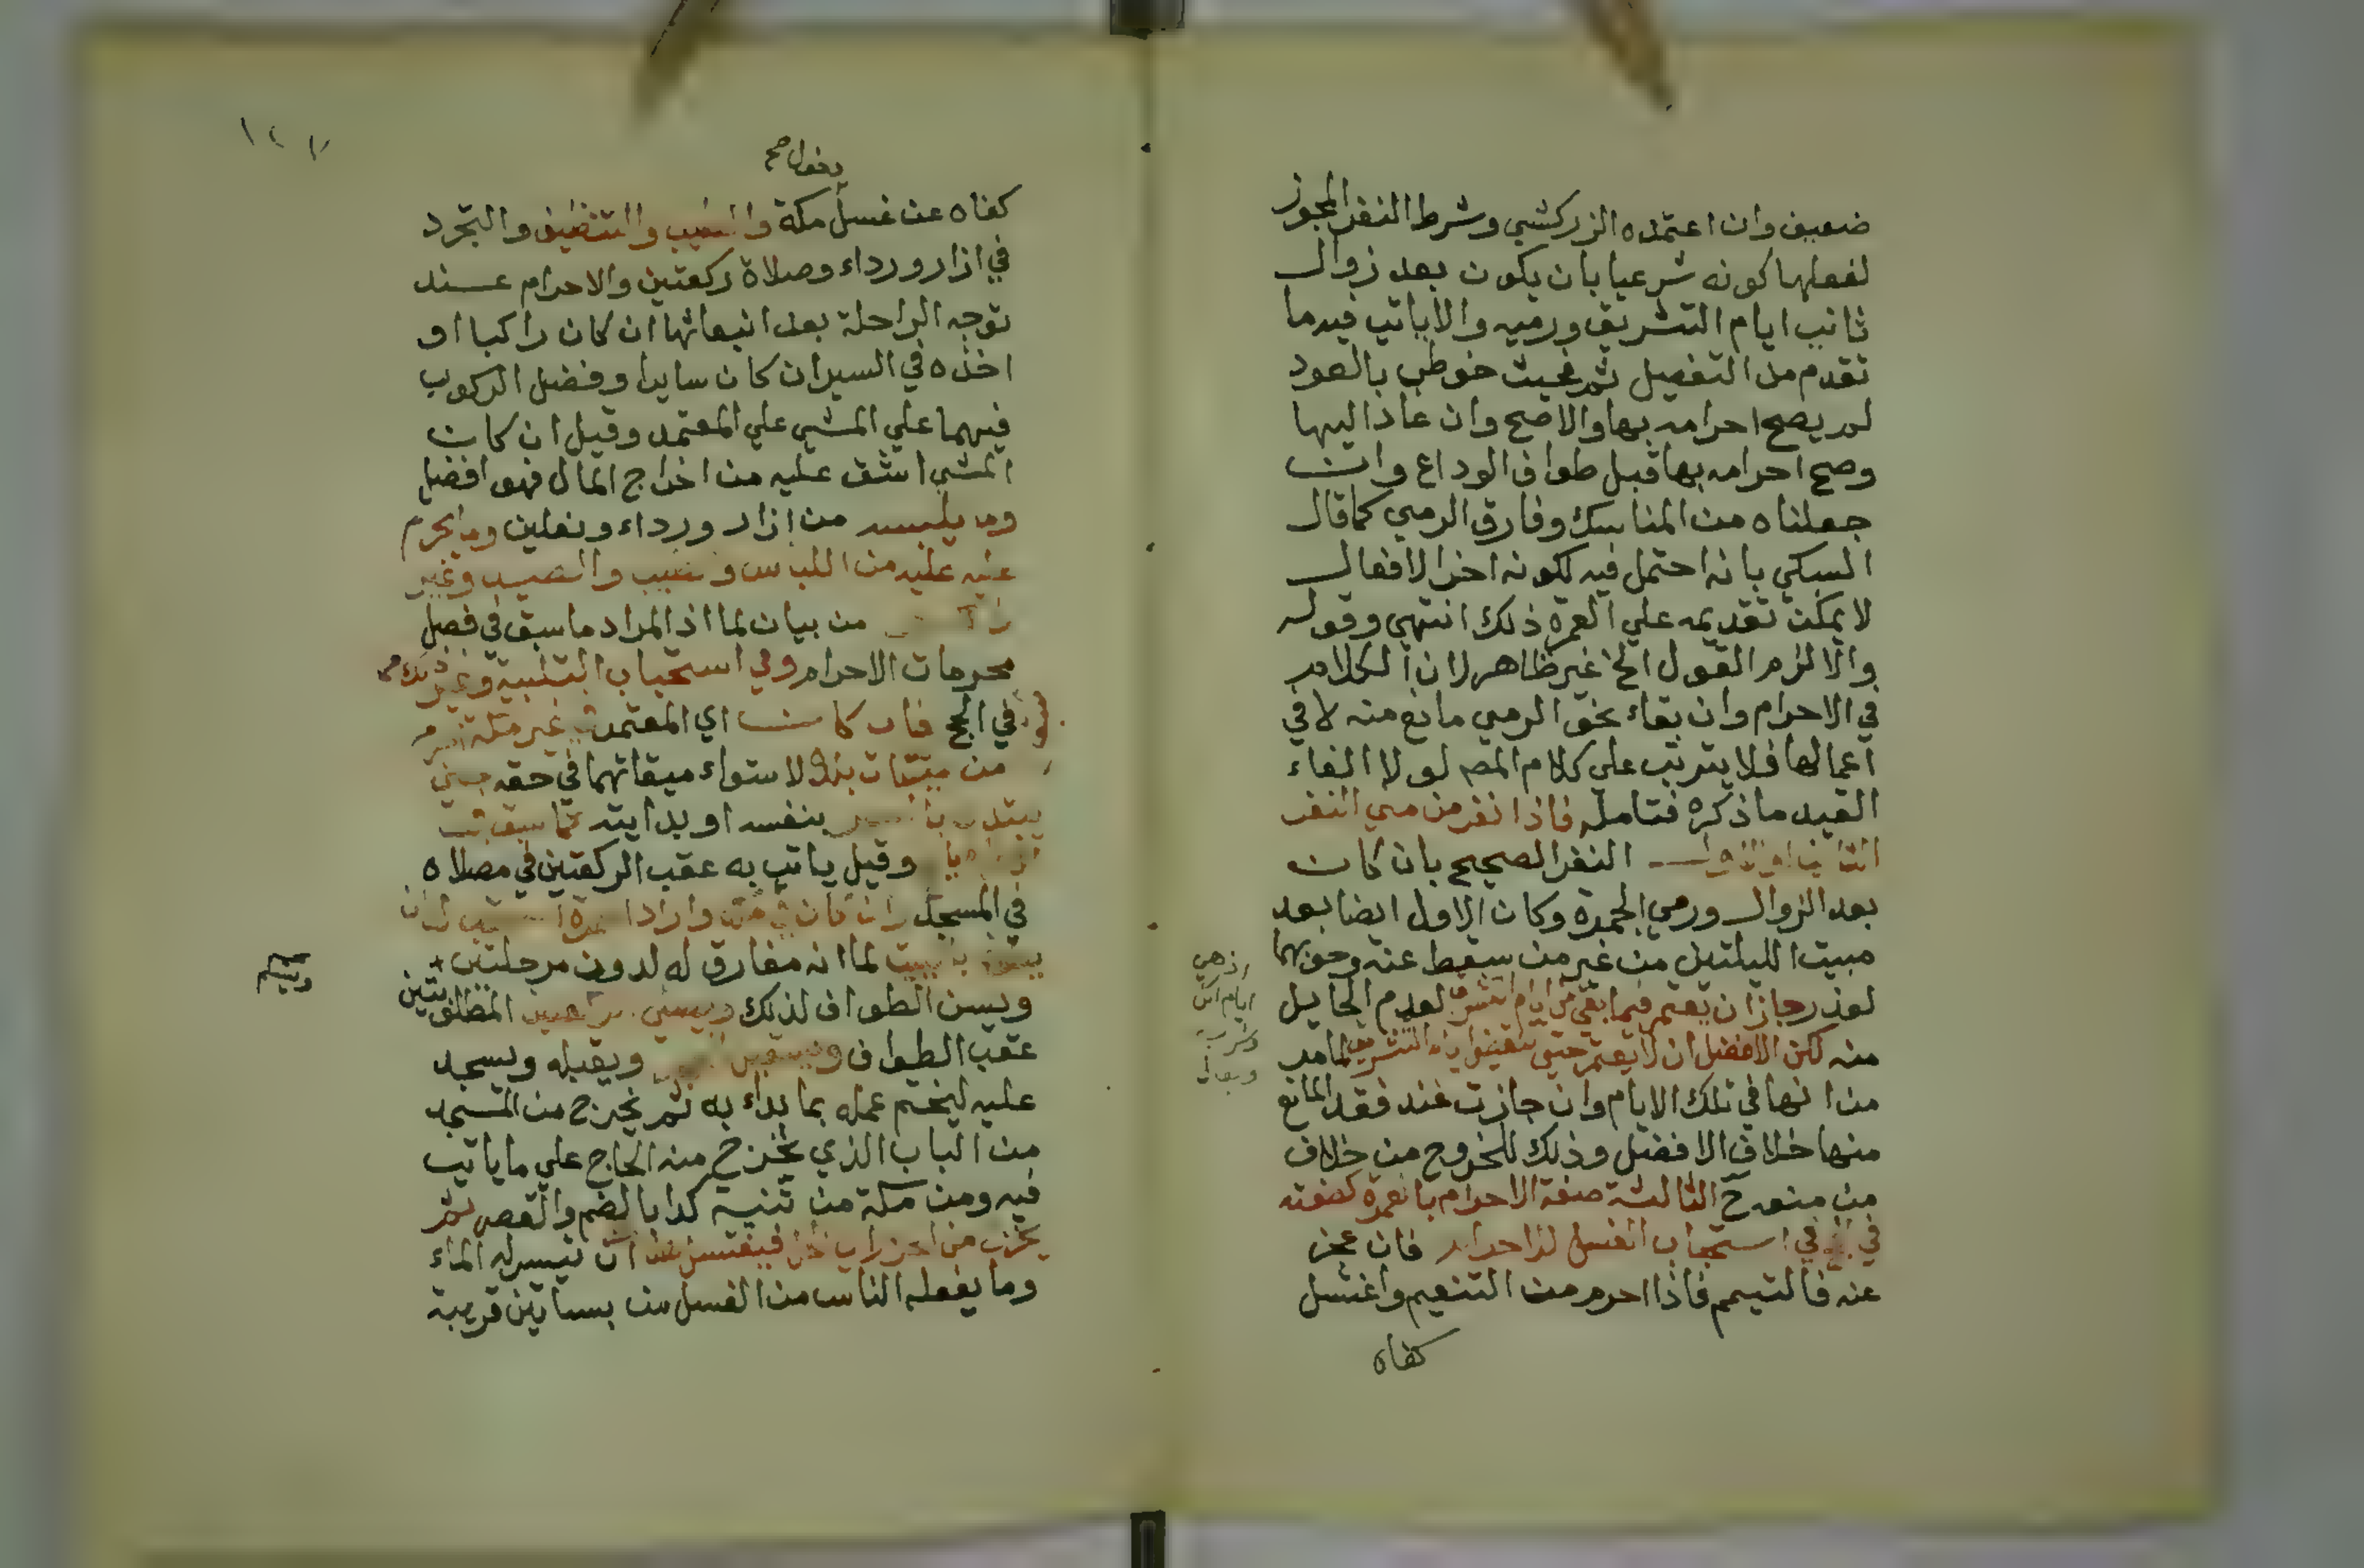 ضعيف وان اعتمده الزركشي وشرط النفر المجوز
لفعلها كونه شرعيا بان يكون بعد زوال
ثاني ايام التشريق ورميه والاياتي فيه ما
تقدم من التفصيل ثم فحيث خوطب بالعود
لم يصح احرامه بها والاصح وان عاد اليها
وصح احرامه بها قبل طواف الوداع وان
جعلناه من المناسك وفارق الرمي كما قال
السبكي بانه احتمل فيه لكونه اخر الافعال
لا يمكن تقديمه علي العمرة ذلك انتهي وقوله
والا لزم القول الخ غير ظاهر لان الكلام
في الاحرام وان بقاء نحو الرمي مانع منه لا في
اعمالها فلا يترتب علي كلام المص لولا الغاء
القيد ما ذكره فتامله فاذا نفر من مني النفر
الثاني او الاول النفر الصحيح بان كان
بعد الزوال ورمي الجمرة وكان الاول ايضا بعد
مبيت الليلتين من غير من سقط عنه وجوبهما
لعذر جاز ان يعتمر فيما بقي من ايام التشريق لعدم الحايل
منه لكن الافضل ان لا يعتمر حتي تنقضي ايام التشريق لما مر
من انها في تلك الايام وان جازت عند فقد المانع
منها خلاف الافضل وذلك للخروج من خلاف
من منعه ح الثالثة صفة الاحرام بالعمرة كصفته
في استحباب الغسل للاحرام فان عجز
عنه فالتيمم فاذا احرم من التنعيم واغتسل
كفاه
١٢٧
دخول صح
كفاه عن غسل مكة والتطيب والتنظيف والتجرد
في ازار ورداء وصلاة ركعتين والاحرام عند
توجه الراحلة بعد انبعاثها ان كان راكبا او
اخذه في السير ان كان سايرا وفضل الركوب
فيهما علي المشي علي المعتمد وقيل ان كان
المشي اشق عليه من اخراج المال فهو افضل
وما يلبسه من ازار ورداء ونعلين وما يحرم
عليه من اللباس والطيب والصيد وغير
من بيان لما اذ المراد ما سبق في فصل
محرمات الاحرام وفي استحباب التلبية وغير ذلك
في الحج فان كان اي المعتمر في غير مكة احرم
من ميقات بلده لاستواء ميقاتهما في حقه حين
يبتدي بالسير بنفسه او بدابته كما سبق في
وقيل ياتي به عقب الركعتين في مصلاه
في المسجد وان كان في مكة واراد العمرة استحب له ان
يطوف بالبيت لما انه مفارق له لدون مرحلتين
ويسن الطواف لذلك ويصلي الركعتين المطلوبتين
عقب الطواف ويستقبل الحجر ويقبله ويسجد
عليه ليختم عمله بما بداء به ثم يخرج من المسجد
من الباب الذي يخرج منه الحاج علي ما ياتي
فيه ومن مكة من ثنية كدا بالضم والقصر ثم
يخرج من الحرم الي الحل فيغتسل هناك ان تيسر له الماء
وما يفعله الناس من الغسل من بساتين قريبة